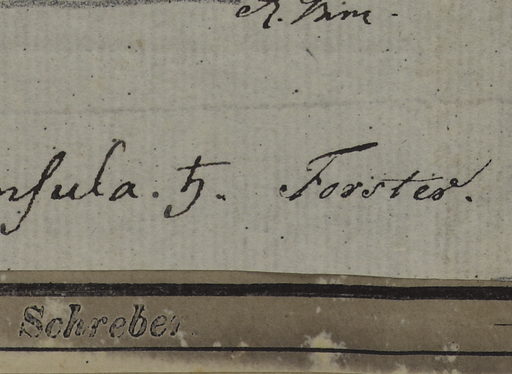 nsula. ♄. Forster.
Schreber.